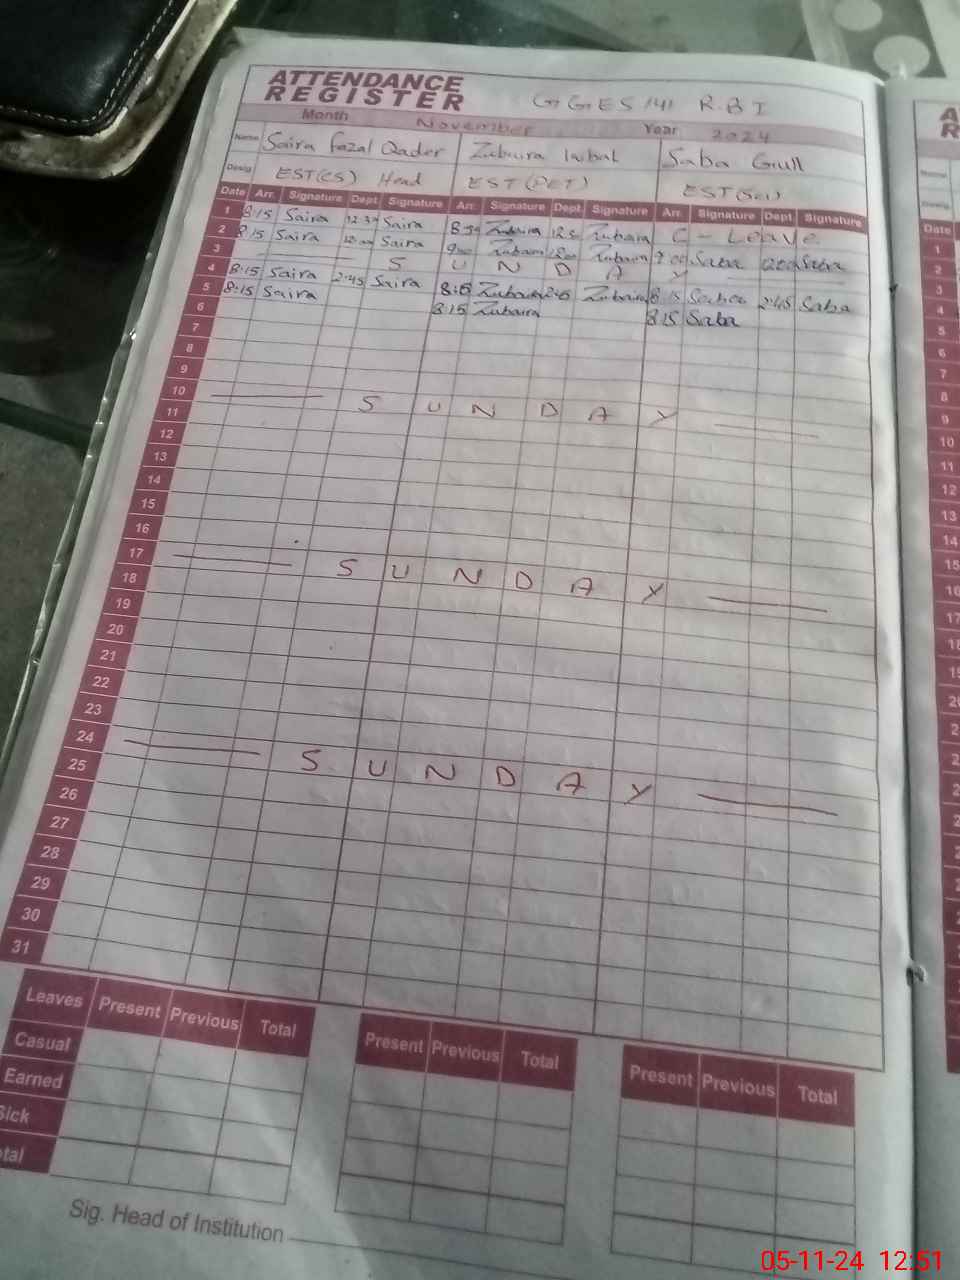 ATTENDANCE
REGISTER
GGES 141 R.B I
Month November Year 2024
Name Saira Fazal Qader Zubaira Saba Gull
Desig EST(CS) Head EST(PET) EST(Sci)
Date Arr. Signature Dept. Signature Arr. Signature Dept. Signature Arr. Signature Dept. Signature
1 8:15 Saira 12:30 Saira Zubaira Zubaira C - Leave
2 8:15 Saira Saira 9:00 Zubaira Zubaira 9:00 Saba 12:00 Saba
3 S U N D A Y
4 8:15 Saira 2:45 Saira 8:15 Zubaira 2:45 Zubaira 8:15 Saba 2:45 Saba
5 8:15 Saira 8:15 Zubaira 8:15 Saba
6
7
8
9
10 S U N D A Y
11
12
13
14
15
16
17 S U N D A Y
18
19
20
21
22
23
24 S U N D A Y
25
26
27
28
29
30
31
Leaves Present Previous Total Present Previous Total Present Previous Total
Casual
Earned
Sick
tal
Sig. Head of Institution
A
R
Name
Desig
Date
1
2
3
4
5
6
7
8
9
10
11
12
13
14
15
16
17
05-11-24 12:51